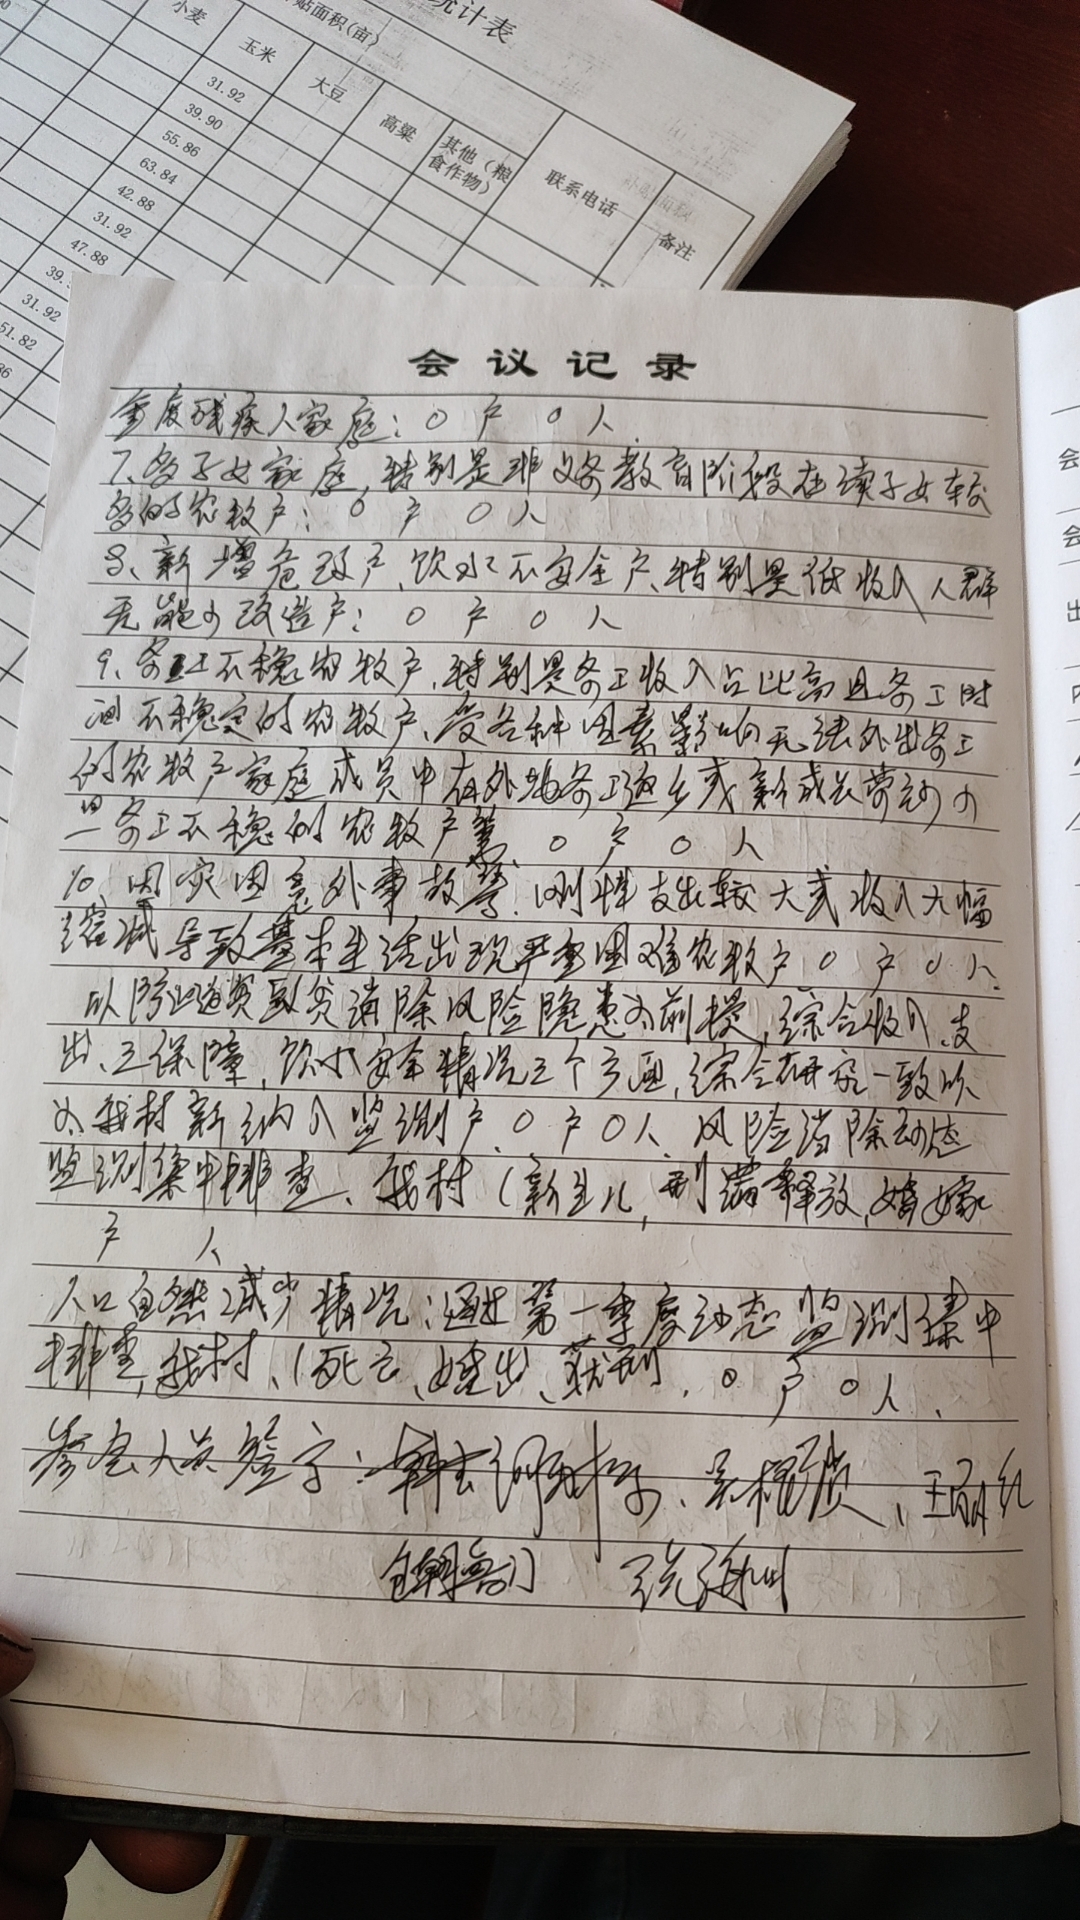 统计表
贴面积(亩)
小麦
玉米
大豆
高粱
其他(粮
食作物)
联系电话
备注
31.92
39.90
55.86
63.84
42.88
31.92
47.88
39.
31.92
51.82
86
会议记录
重度残疾人家庭:0户0人
7、多子女家庭,特别是非义务教育阶段在读子女较
多的农牧户:0户0人
8、新增危改户、饮水不安全户、特别是低收入人群
无能力改造户:0户0人
9、务工不稳农牧户,特别是务工收入占比高且务工时
间不稳定的农牧户、受各种因素影响无法外出务工
的农牧户家庭成员中有外地务工返乡或新成长劳动力
务工不稳的农牧户等、0户0人
10、因灾因意外事故等,刚性支出较大或收入大幅
缩减导致基本生活出现严重困难农牧户0户0人
以防止返贫致贫消除风险隐患为前提,综合收入、支
出、三保障,饮水安全情况三个方面,综合研究一致认
为,我村新纳入监测户、0户0人、风险消除动态
监测集中排查、我村(新生儿,刑满释放,婚嫁
户 人
人口自然减少情况:通过第一季度动态监测集中
排查,我村、(死亡、嫁出、获刑、0户0人、
参会人员签字:
会
会
出